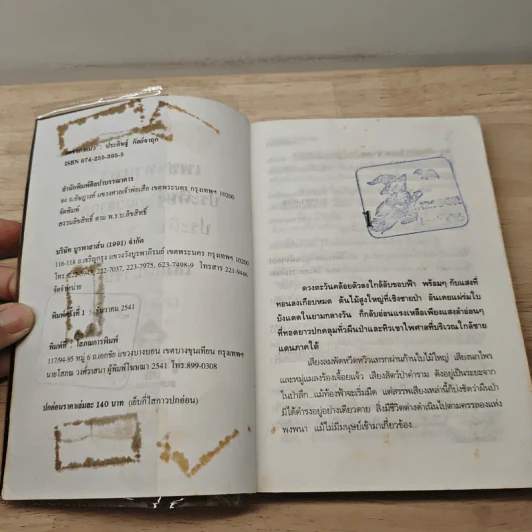 : ประดิษฐ์ กัลย์จาฤก
ISBN 974-255-395-5
สำนักพิมพ์ศิลปาบรรณาคาร
เขตพระนคร กรุงเทพฯ 10200
จัดพิมพ์
สงวนลิขสิทธิ์ ตาม พ.ร.บ.ลิขสิทธิ์
บริษัท บูรพาสาส์น (1991) จำกัด
116-118 ถ.เจริญกรุง แขวงวังบูรพาภิรมย์ เขตพระนคร กรุงเทพฯ 10200
222-7037, 223-7975, 623-7498-9 โทรสาร 221-9446
จัดจำหน่าย
พิมพ์ครั้งที่ 1 : 2541
พิมพ์ที่ : โสภณการพิมพ์
117/94-95 หมู่ 6 ถ.เอกชัย แขวงบางบอน เขตบางขุนเทียน กรุงเทพฯ
นายโสภณ วงศ์วาสนา ผู้พิมพ์โฆษณา 2541 โทร.899-0308
ปกอ่อนราคาเล่มละ 140 บาท (เย็บกี่ไสกาวปกอ่อน)
ดวงตะวันคล้อยตัวลงใกล้ลับขอบฟ้า พร้อมๆ กับแสงที่
ทอนลงเกือบหมด ต้นไม้สูงใหญ่ที่เชิงชายป่า อันเคยแผ่ร่มใบ
บังแดดในยามกลางวัน ก็กลับอ่อนแรงเหลือเพียงแสงลำอ่อนๆ
ที่ทอดยาวปกคลุมทั่วผืนป่าและทิวเขาไพศาลที่บริเวณใกล้ชาย
แดนภาคใต้
เสียงลมพัดหวีดหวิวแทรกผ่านก้านใบไม้ใหญ่ เสียงนกไพร
และหมู่แมลงร้องเจื้อยแจ้ว เสียงสัตว์ป่าคำราม ดังอยู่เป็นระยะจาก
ในป่าลึก...แม้ท้องฟ้าจะเริ่มมืด แต่สรรพเสียงเหล่านี้ก็บ่งชัดว่าผืนป่า
มิได้ดำรงอยู่อย่างเดียวดาย สิ่งมีชีวิตต่างดำเนินไปตามครรลองแห่ง
พงพนา แม้ไม่มีมนุษย์เข้ามาเกี่ยวข้อง...